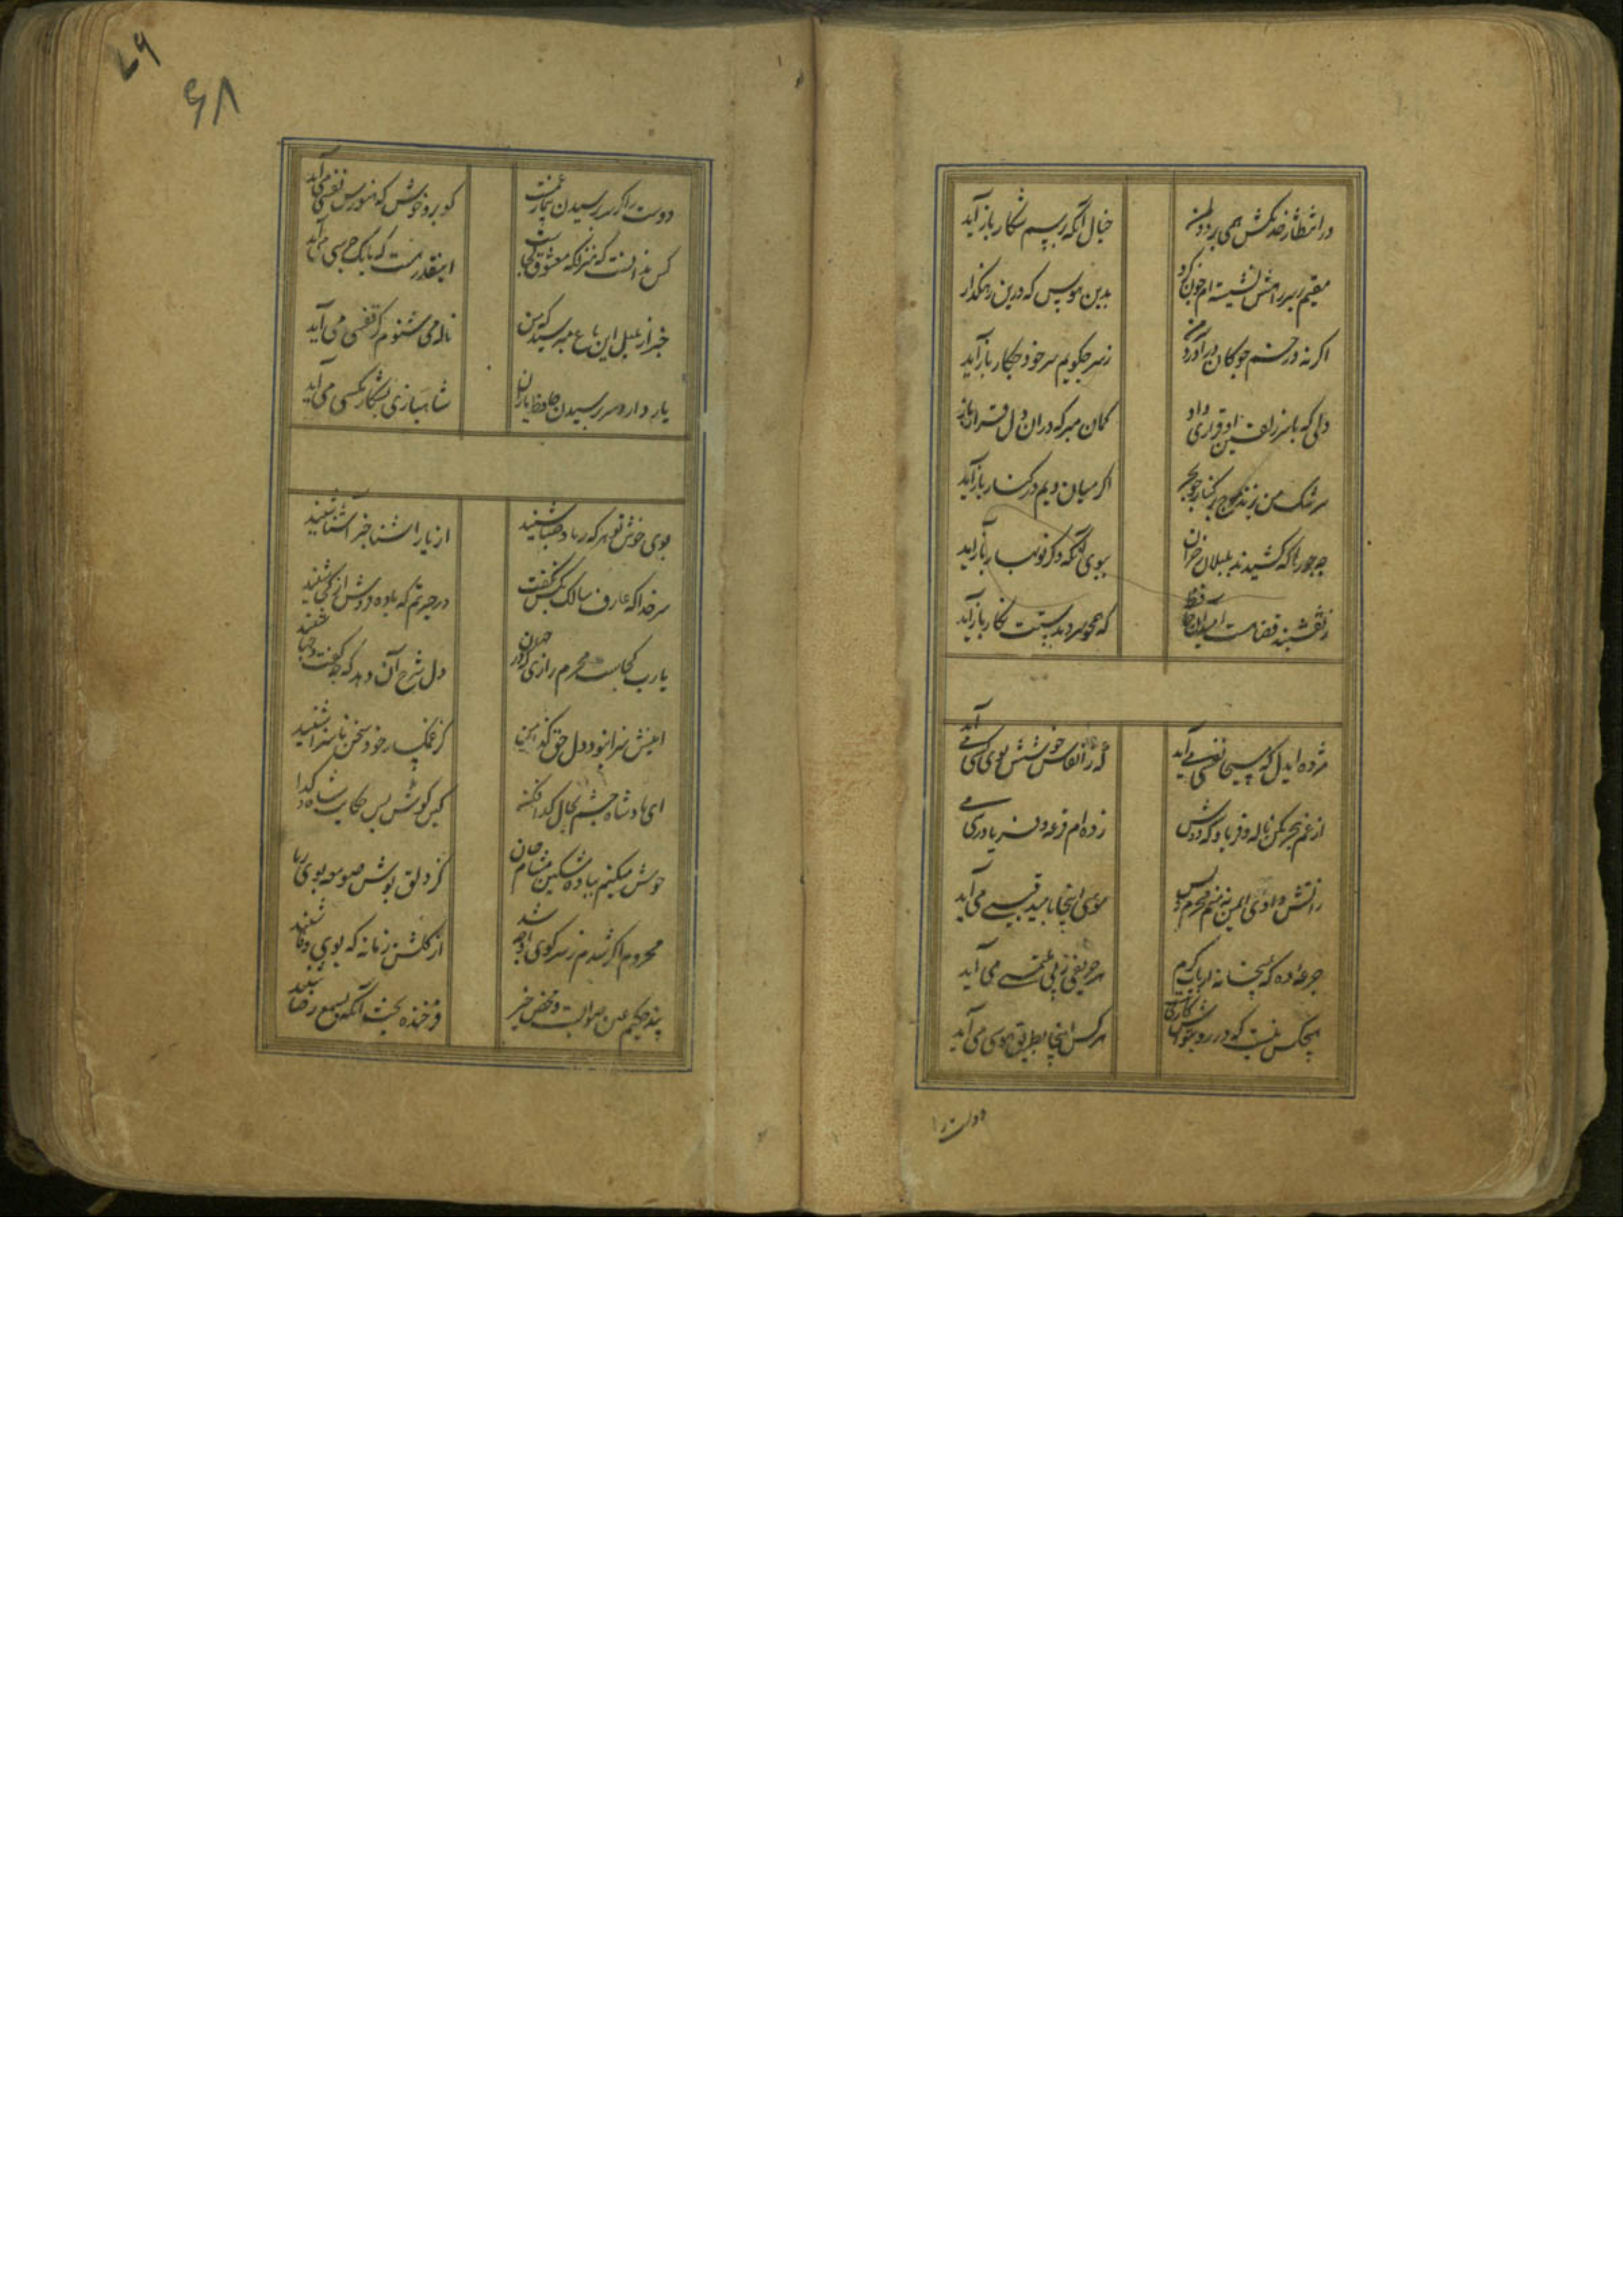 در انتظار خدنکش همی برد دل من
خیال آنکه برسم شکار باز آید
مقیم بر سر راهش نشسته ام چون کرد
بدین هوس که درین رهکذار
اکر نه در خم چوکان در آورد من
ز سر چکویم سر خود چکار باز آید
دلی که با سر زلفین او قراری داد
کمان مبر که در ان دل قرار باز
سرشک من نزند موج بر کنار چو بحر
اکر میان ویم در کنار باز آید
چه جورها که کشیدند بلبلان خزان
ببوی آنکه دکر نوبهار باز آید
ز نقشبند قضا هست امید ان حافظ
که همچو سرو بدستت نکار باز آید
مژده ایدل که مسیحا نفسی می آید
که ز انفاس خوشش بوی کسی می آید
از غم هجر مکن ناله و فریاد که دوش
زده ام قرعه و فریادرسی می
ز آتش وادی ایمن نه منم خرم و بس
موسی اینجا بامید قبسی می آید
جرعه ده که بمیخانه ارباب کرم
هر حریفی ز پی ملتمسی می آید
هیچکس نیست که در روبتوش کاری نیست
هر کس اینجا بطریق هوسی می آید
دوست را
۶۹
۶۸
دوست را کر سر پرسیدن بیمار غمت
کو برو خوش که هنوزش نفسی می آید
کس ندانست که منزلکه معشوق کجاست
اینقدر هست که بانک جرسی می آید
خبر از بلبل این باغ مپرسید که من
ناله می شنوم کز قفسی می آید
یار دارد سر پرسیدن حافظ یاران
شاهبازی بشکار مکسی می آید
بوی خوش تو هر که ز باد صبا شنید
از یار اشنا خبر آشنا شنید
سر خدا که عارف سالک بکس نکفت
در حیرتم که باده فروش از کجا شنید
یا رب کجاست محرم رازی که در جهان
دل شرح آن دهد که چه کفت و چها شنید
اینش سزا نبود دل حق کذار من
کز غمکسار خود سخن ناسزا شنید
ای پادشاه چشم بحال کدا فکن
کین کوش بس حکایت شاه و کدا
خوش میکنم بباده مشکین مشام جان
کز دلق پوش صومعه بوی ریا
محروم اکر شدم ز سر کوی او چه شد
از کلشن زمانه که بوی وفا شنید
پند حکیم عین صوابست و محض خیر
فرخنده بخت آنکه بسمع رضا شنید